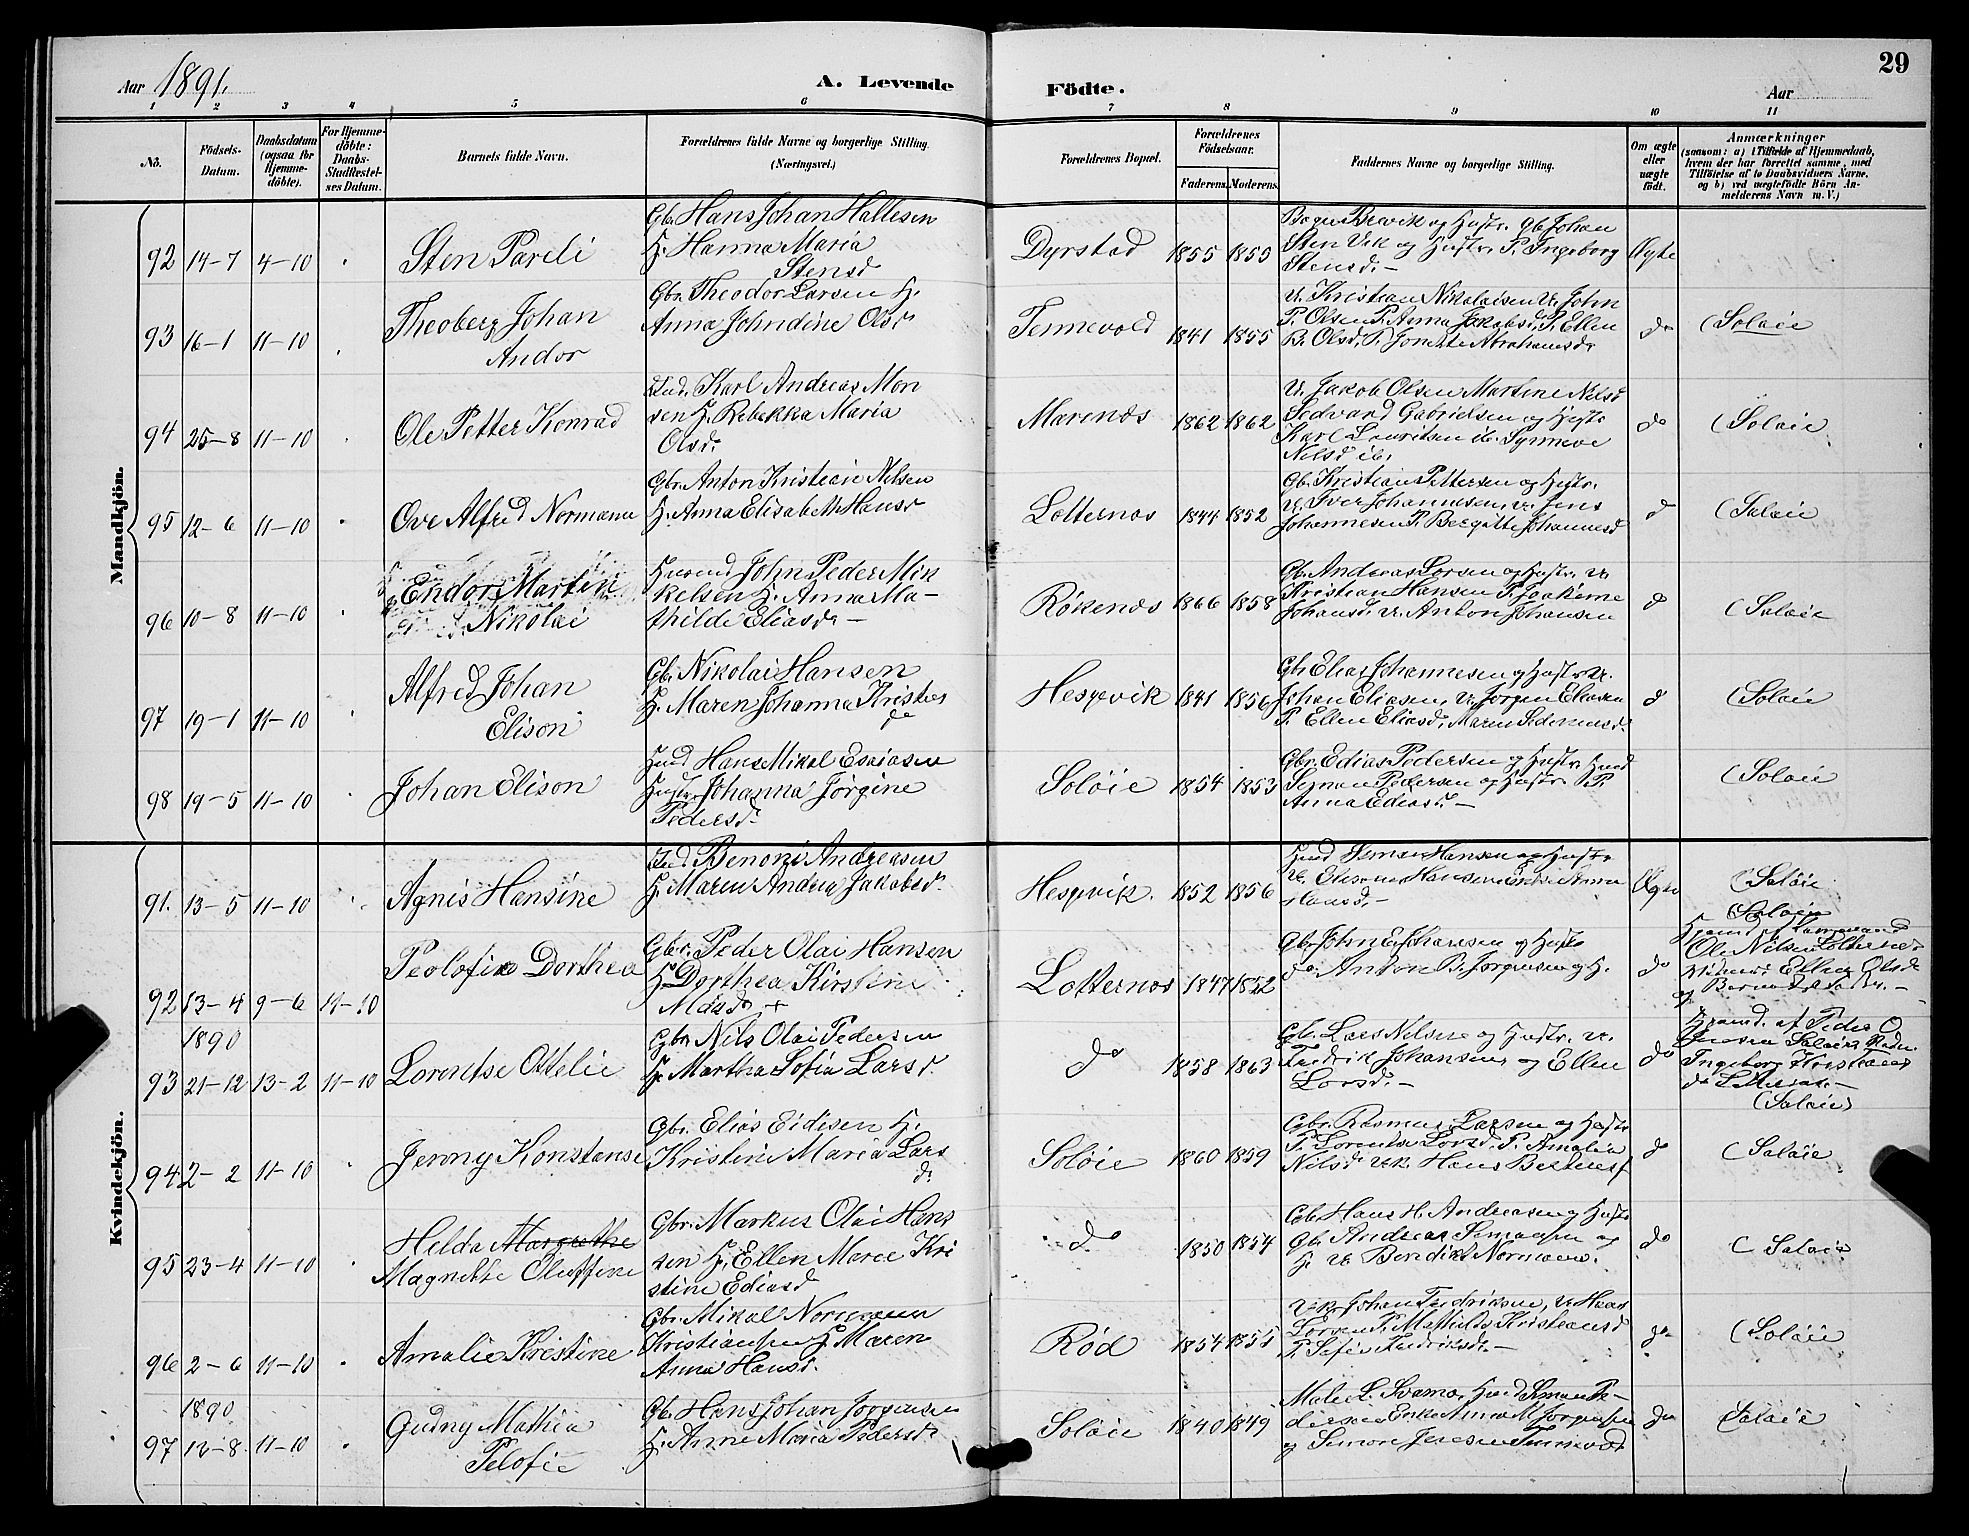 Aar 1891.
A. Levende
Födte.
Aar
29
1 2 3 4 5 6 7 8 9 10 11
No.
Födsels-Datum.
Daabsdatum (ogsaa for Hjemme-döbte).
For Hjemme-döbte: Daabs-Stadfæstel-ses Datum.
Barnets fulde Navn.
Forældrenes fulde Navne og borgerlige Stilling. (Næringsvei.)
Forældrenes Bopæl.
Forældrenes Födselsaar.
Faderens.
Moderens.
Faddernes Navne og borgerlige Stilling.
Om ægte eller uægte födt.
Anmærkninger
(saasom: a) i Tilfælde af Hjemmedaab, hvem der har forrettet samme, med Tilföielse af to Daabsvidners Navne, og b) ved uægtefödte Börn An-melderens Navn m. V.)
Mandkjön.
92 14-7 4-10
Sten Pareli
Gbr. Hans Johan Hallesen
H. Hanna Maria
Stensd
Dyrstad 1855 1855
Sten Vik og Hustr. P. Ingeborg
Stensd.
Ægte
93 16-1 11-10
Theoberg Johan
Andor
Gbr. Theodor Larsen H.
Anna Johndine Olsd
Tennevold 1841 1855
v. Kristian Nikolaisen v. John
P. Olsen P. Anna Jakobsd. P. Ellen
B. Olsd. P. Jonette Abrahamsd.
do
(Soløie
94 25-8 11-10
Ole Petter Konrad
Ind. Karl Andreas Mon
sen H. Rebekka Maria
Olsd.
Marenæs 1862 1862
v. Jakob Olsen Martine Nilsd
Sedvard Gabrielsen og Hustr
Karl Lauritsen ib. Synneve
Nilsd ib.
do
(Soløie
95 12-6 11-10
Ove Alfred Normann
Gbr. Anton Kristian Nilsen
H. Anna Elisabeth Hansd
Lotternæs 1844 1852
Gb. Kristian Pettersen og Hustr.
v. Iver Johannesen, v. Jens
Johannesen P. Bergitte Johannesd
d
(Soløie
96 10-8 11-10
Endor Martin
Nikolai
Husmd John Peder Mik
kelsen H. Anna Ma-
thilde Eliasd.
Røkenæs 1866 1858
Gb. Andreas Larsen og Hustr. v.
Kristian Hansen P. Joakime
Johansd. v. Anton Johansen
d
(Soløie
97 19-1 11-10
Alfred Johan
Elison
Gbr. Nikolai Hansen
H. Maren Johanna Kristens
d
Hesjevik 1841 1856
Gbr. Elias Johannesen og Hustr. v.
Johan Eliasen, v. Jørgen Eliasen
P. Ellen Eliasd.
d
(Soløie
98 19-5 11-10
Johan Elison
Hmd Hans Mikal Esaiasen
Hustr. Johanna Jørgine
Pedersd.
Soløie 1854 1853
Gbr. Edias Pedersen og Hustr. Hmd
Simon Pedersen og Hustr. P.
Anna Ediasd.
(Soløie
Kvindekjön.
91. 13-5 11-10
Agnis Hansine
Ind. Benoni Andreasen
H. Maren Andrea Jakobsd.
Hesjevik. 1852 1856
Hmd Simon Hansen og Hustr
Hansd.
Ægte
(Soløie
92 13-4 9-6 11-10
Peolofine Dorthea
Gbr. Peder Olai Hansen
H. Dorthea Kirstine
Madsd.
Lotternæs 1847 1852
Gb. John E. Johansen og Hustr
do Anton B. Jørgensen og H.
do
(Soløie
Ole Nilsen Lotternæs
Ellen Olsd
1890
93 21-12 13-2 11-10
Lorentse Ottelie
Gbr Nils Olai Pedersen
H. Martha Sofia Larsd.
do 1858 1863
Gb. Lars Nilsen og Hustr. v.
Fredrik Johansen og Ellen
Larsd.
do
Hjemd. af Peder O.
Ingeborg Kristians
(Soløie)
94 2-2 11-10
Jenny Konstanse
Gbr. Elias Eidisen H.
Kristine Maria Lars
d.
Soløie 1860 1859
Gbr. Rasmus Larsen og Hustr
P. Lorentse Larsd. P. Amalia
Nilsd.
d
(Soløie
95 23-4 11-10
Helda Margrethe
Magnette Oluffine
Gbr. Markus Olai Hans
sen H. Ellen Maree Kri
stine Ediasd
do 1850 1854
Gb. Hans H. Andreasen og Hustr
Gb. Andreas Simonsen og
H. v. Bendikt Normann.
do
(Soløie
96 2-6 11-10
Amalie Kristine
Gbr. Mikal Normann
Kristiansen H. Maren
Anna Hansd.
Rød 1854 1855
v.k. Johan Fredriksen, v. Hans
Larsen P. Mathilde Kristiansd
P. Sofie Fredriksd.
do
(Soløie
1890
97 12-8 11-10
Gudny Mathea
Pelofie
Gb. Hans Johan Jørgensen
H. Anne Maria Pedersd.
Soløie 1840 1849
og Simon Jensen Tennevold
do
(Soløie